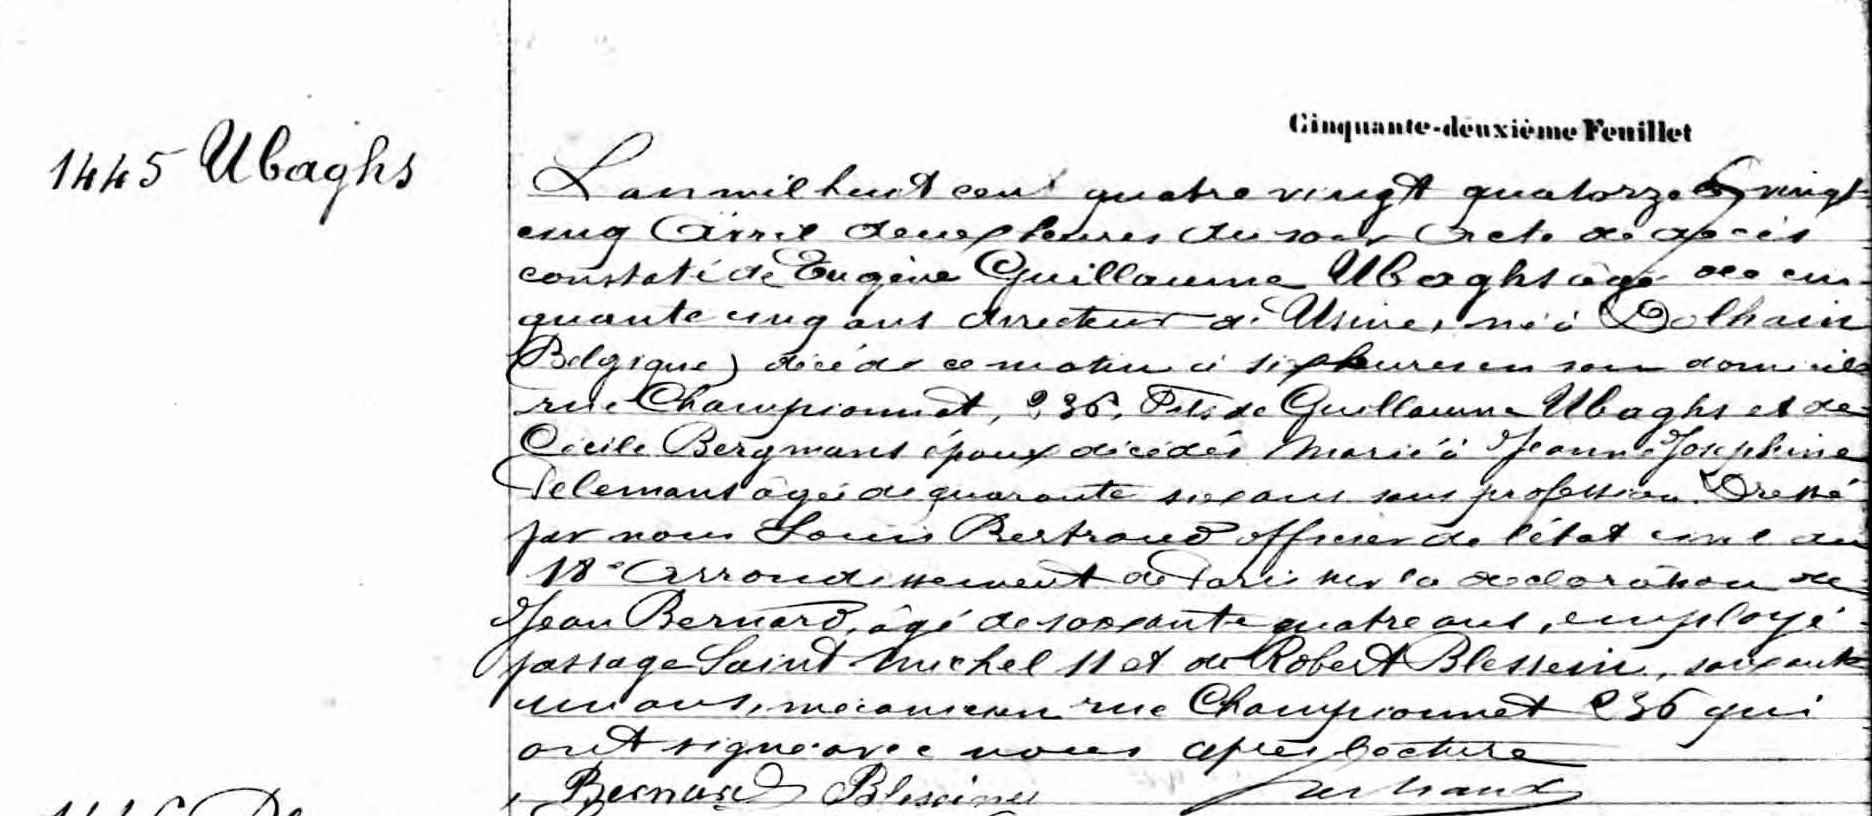 Cinquante-deuxième Feuillet
1445 Ubaghs
L'an mil huit cent quatre vingt quatorze le vingt
cinq Avril deux heures du soir Acte de décès
constaté de Eugène Guillaume Ubaghs âgé de cin
quante cinq ans directeur d'Usine, né à Dolhain
(Belgique) décédé ce matin à six heures en son domicile
rue Championnet, 236, Fils de Guillaume Ubaghs et de
Cécile Bergmans époux décédés Marié à Jeanne Joséphine
Pelemans âgée de quarante six ans sans profession. Dressé
par nous Louis Bertrand officier de l'état civil du
18e Arrondissement de Paris sur la déclaration de
Jean Bernard, âgé de soixante quatre ans, employé
passage Saint Michel 11 et de Robert Blessein, soixante
un ans, mécanicien rue Championnet 236 qui
ont signé avec nous après lecture
Bernard Bertrand